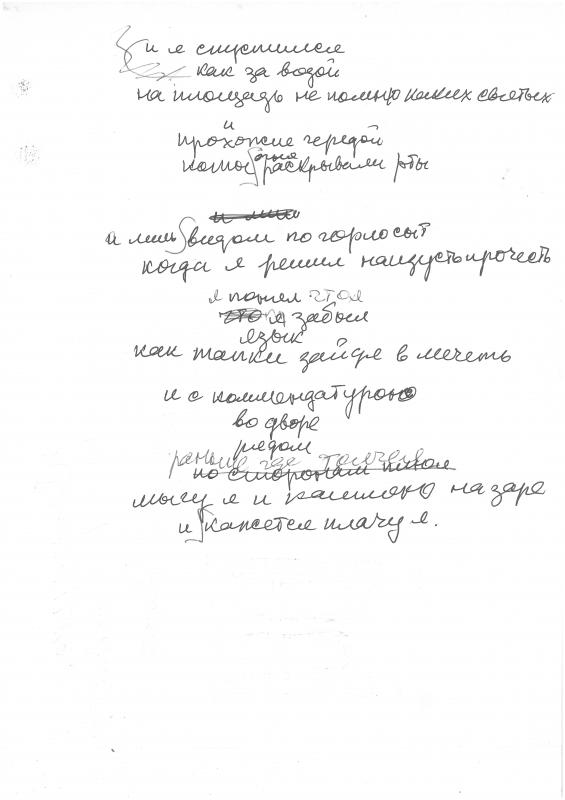 и я спустился
как за водой
на площадь не помню каких святых
и
прохожие чередой
раскрывали рты
и лишь
а лишь видом по горло сыт
когда я решил наизусть прочесть
я понял что я
что я забыл
язык
как тапки зайдя в мечеть
и с комендатурою
во дворе
рядом
раньше где
по сторонам
мычу я и на заре
и кажется плачу я.